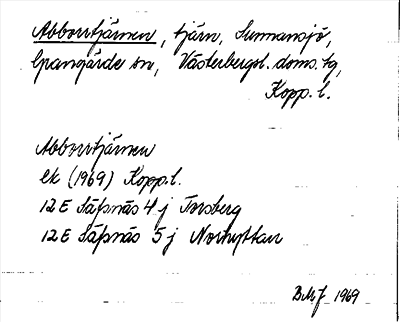 Abborrtjärnen, tjärn, Sunnansjö,
Grangärde sn, Västerbergsl. doms. tg,
Kopp. l.
Abborrtjärnen
ek (1969) Kopp. l.
12 E Säfsnäs 4 j Torsberg
12 E Säfsnäs 5 j Norhyttan
BMJ 1969